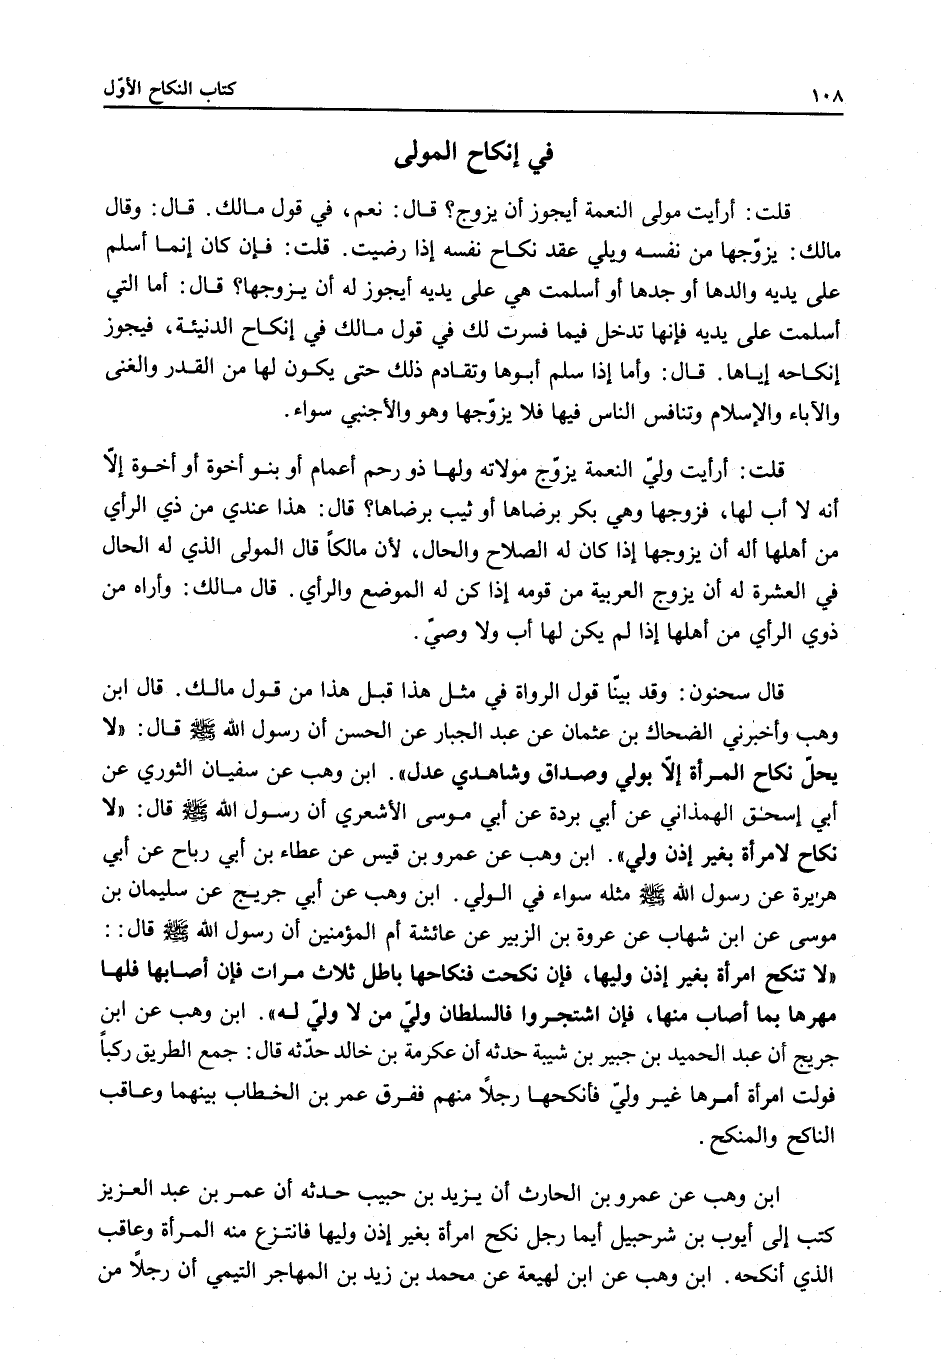 ١٠٨ كتاب النكاح الأوّل
في إنكاح المولى
قلت: أرأيت مولى النعمة أيجوز أن يزوج؟ قال: نعم، في قول مالك. قال: وقال
مالك: يزوّجها من نفسه ويلي عقد نكاح نفسه إذا رضيت. قلت: فإن كان إنما أسلم
على يديه والدها أو جدها أو أسلمت هي على يديه أيجوز له أن يزوجها؟ قال: أما التي
أسلمت على يديه فإنها تدخل فيما فسرت لك في قول مالك في إنكاح الدنيئة، فيجوز
إنكاحه إياها. قال: وأما إذا سلم أبوها وتقادم ذلك حتى يكون لها من القدر والغنى
والآباء والإسلام وتنافس الناس فيها فلا يزوّجها وهو والأجنبي سواء.
قلت: أرأيت وليّ النعمة يزوّج مولاته ولها ذو رحم أعمام أو بنو أخوة أو أخوة إلّا
أنه لا أب لها، فزوجها وهي بكر برضاها أو ثيب برضاها؟ قال: هذا عندي من ذي الرأي
من أهلها أله أن يزوجها إذا كان له الصلاح والحال، لأن مالكاً قال المولى الذي له الحال
في العشرة له أن يزوج العربية من قومه إذا كن له الموضع والرأي. قال مالك: وأراه من
ذوي الرأي من أهلها إذا لم يكن لها أب ولا وصيّ.
قال سحنون: وقد بينّا قول الرواة في مثل هذا قبل هذا من قول مالك. قال ابن
وهب وأخبرني الضحاك بن عثمان عن عبد الجبار عن الحسن أن رسول الله ﷺ قال: «لا
يحلّ نكاح المرأة إلّا بولي وصداق وشاهدي عدل». ابن وهب عن سفيان الثوري عن
أبي إسحٰق الهمذاني عن أبي بردة عن أبي موسى الأشعري أن رسول الله ﷺ قال: «لا
نكاح لامرأة بغير إذن ولي». ابن وهب عن عمرو بن قيس عن عطاء بن أبي رباح عن أبي
هريرة عن رسول الله ﷺ مثله سواء في الولي. ابن وهب عن أبي جريج عن سليمان بن
موسى عن ابن شهاب عن عروة بن الزبير عن عائشة أم المؤمنين أن رسول الله ﷺ قال: :
«لا تنكح امرأة بغير إذن وليها، فإن نكحت فنكاحها باطل ثلاث مرات فإن أصابها فلها
مهرها بما أصاب منها، فإن اشتجروا فالسلطان وليّ من لا وليّ له». ابن وهب عن ابن
جريج أن عبد الحميد بن جبير بن شيبة حدثه أن عكرمة بن خالد حدّثه قال: جمع الطريق ركباً
فولت امرأة أمرها غير وليّ فأنكحها رجلاً منهم ففرق عمر بن الخطاب بينهما وعاقب
الناكح والمنكح.
ابن وهب عن عمرو بن الحارث أن يزيد بن حبيب حدثه أن عمر بن عبد العزيز
كتب إلى أيوب بن شرحبيل أيما رجل نكح امرأة بغير إذن وليها فانتزع منه المرأة وعاقب
الذي أنكحه. ابن وهب عن ابن لهيعة عن محمد بن زيد بن المهاجر التيمي أن رجلاً من